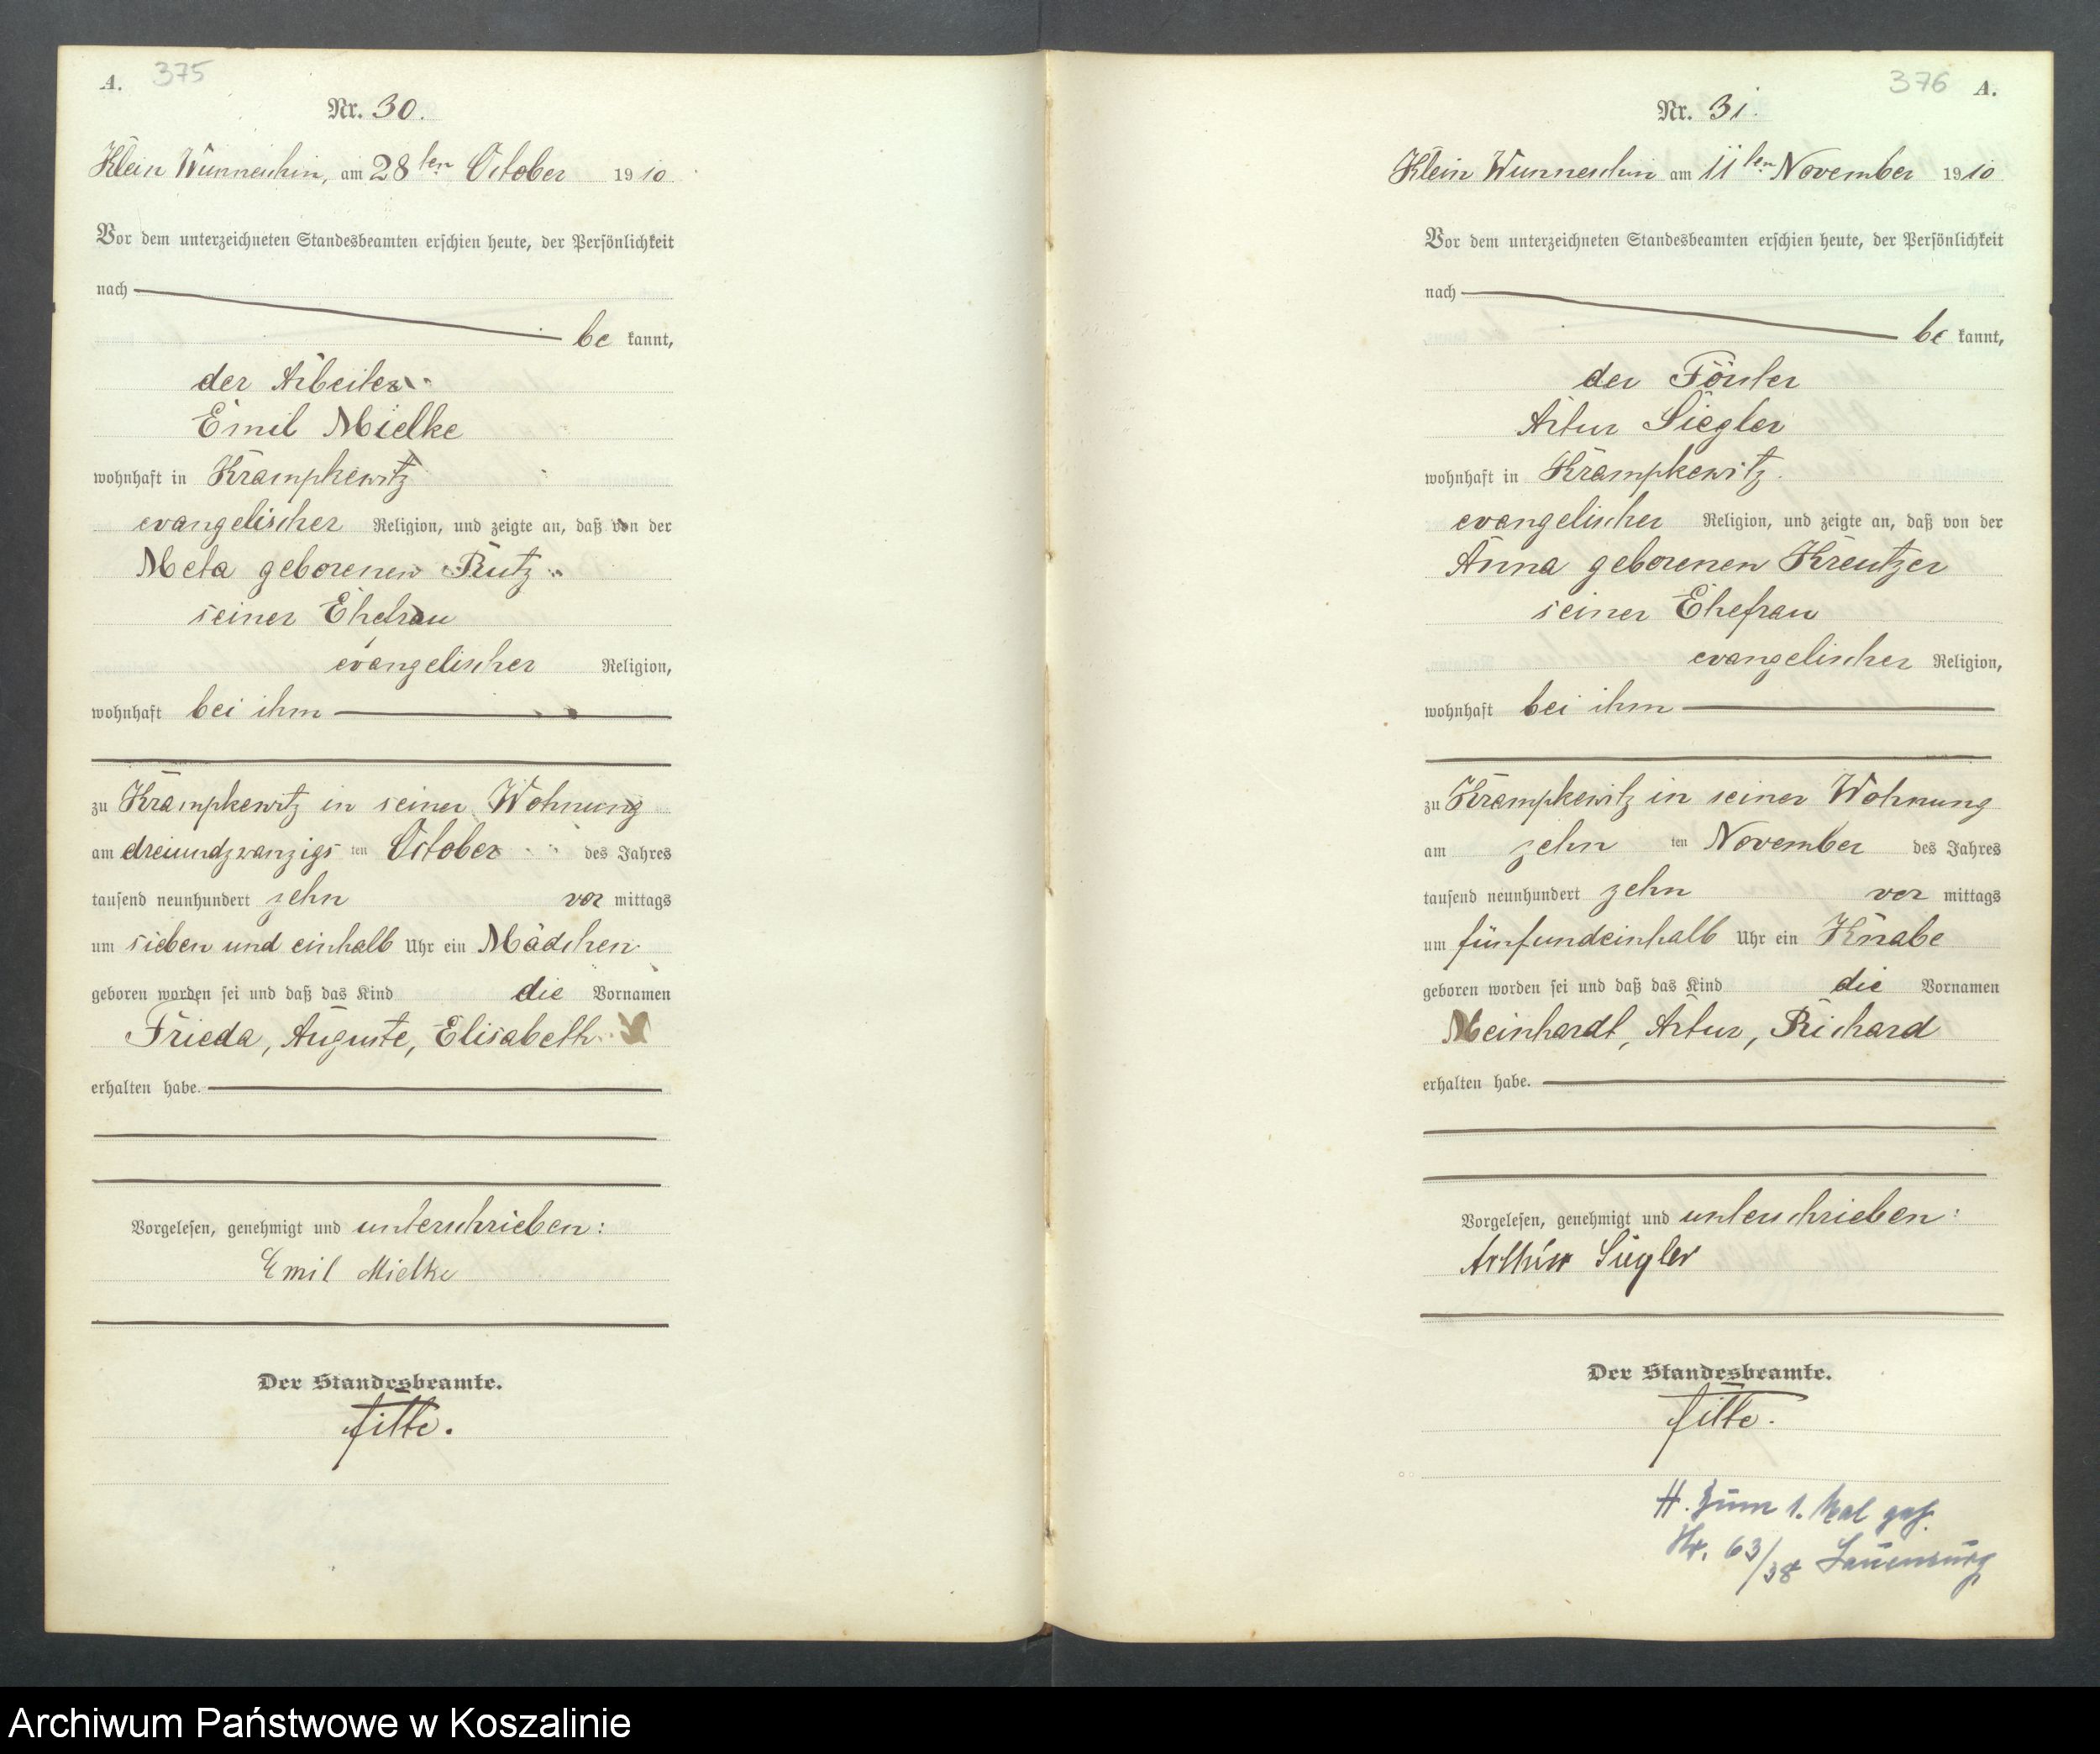 A. 375
Nr. 30.
Klein Wunneschin, am 28ten October 1910
Vor dem unterzeichneten Standesbeamten erschien heute, der Persönlichkeit
nach
be kannt,
der Arbeiter
Emil Mielke
wohnhaft in Krampkewitz
evangelischer Religion, und zeigte an, daß von der
Meta geborenen Rutz
seiner Ehefrau
evangelischer Religion,
wohnhaft bei ihm
zu Krampkewitz in seiner Wohnung
am dreiundzwanzigsten October des Jahres
tausend neunhundert zehn vor mittags
um sieben und einhalb Uhr ein Mädchen
geboren worden sei und daß das Kind die Vornamen
Frieda, Auguste, Elisabeth
erhalten habe.
Vorgelesen, genehmigt und unterschrieben:
Emil Mielke
Der Standesbeamte.
376 A.
Nr. 31.
Klein Wunneschin am 11ten November 1910
Vor dem unterzeichneten Standesbeamten erschien heute, der Persönlichkeit
nach
be kannt,
der Förster
Artur Siegler
wohnhaft in Krampkewitz.
evangelischer Religion, und zeigte an, daß von der
Anna geborenen Kreutzer
seiner Ehefrau
evangelischer Religion,
wohnhaft bei ihm
zu Krampkewitz in seiner Wohnung
am zehn ten November des Jahres
tausend neunhundert zehn vor mittags
um fünfundeinhalb Uhr ein Knabe
geboren worden sei und daß das Kind die Vornamen
Meinhardt, Artur, Richard
erhalten habe.
Vorgelesen, genehmigt und unterschrieben:
Arthur Siegler
Der Standesbeamte.
H. zum 1. Mal
Nr. 63/38 Lauenburg
Archiwum Państwowe w Koszalinie